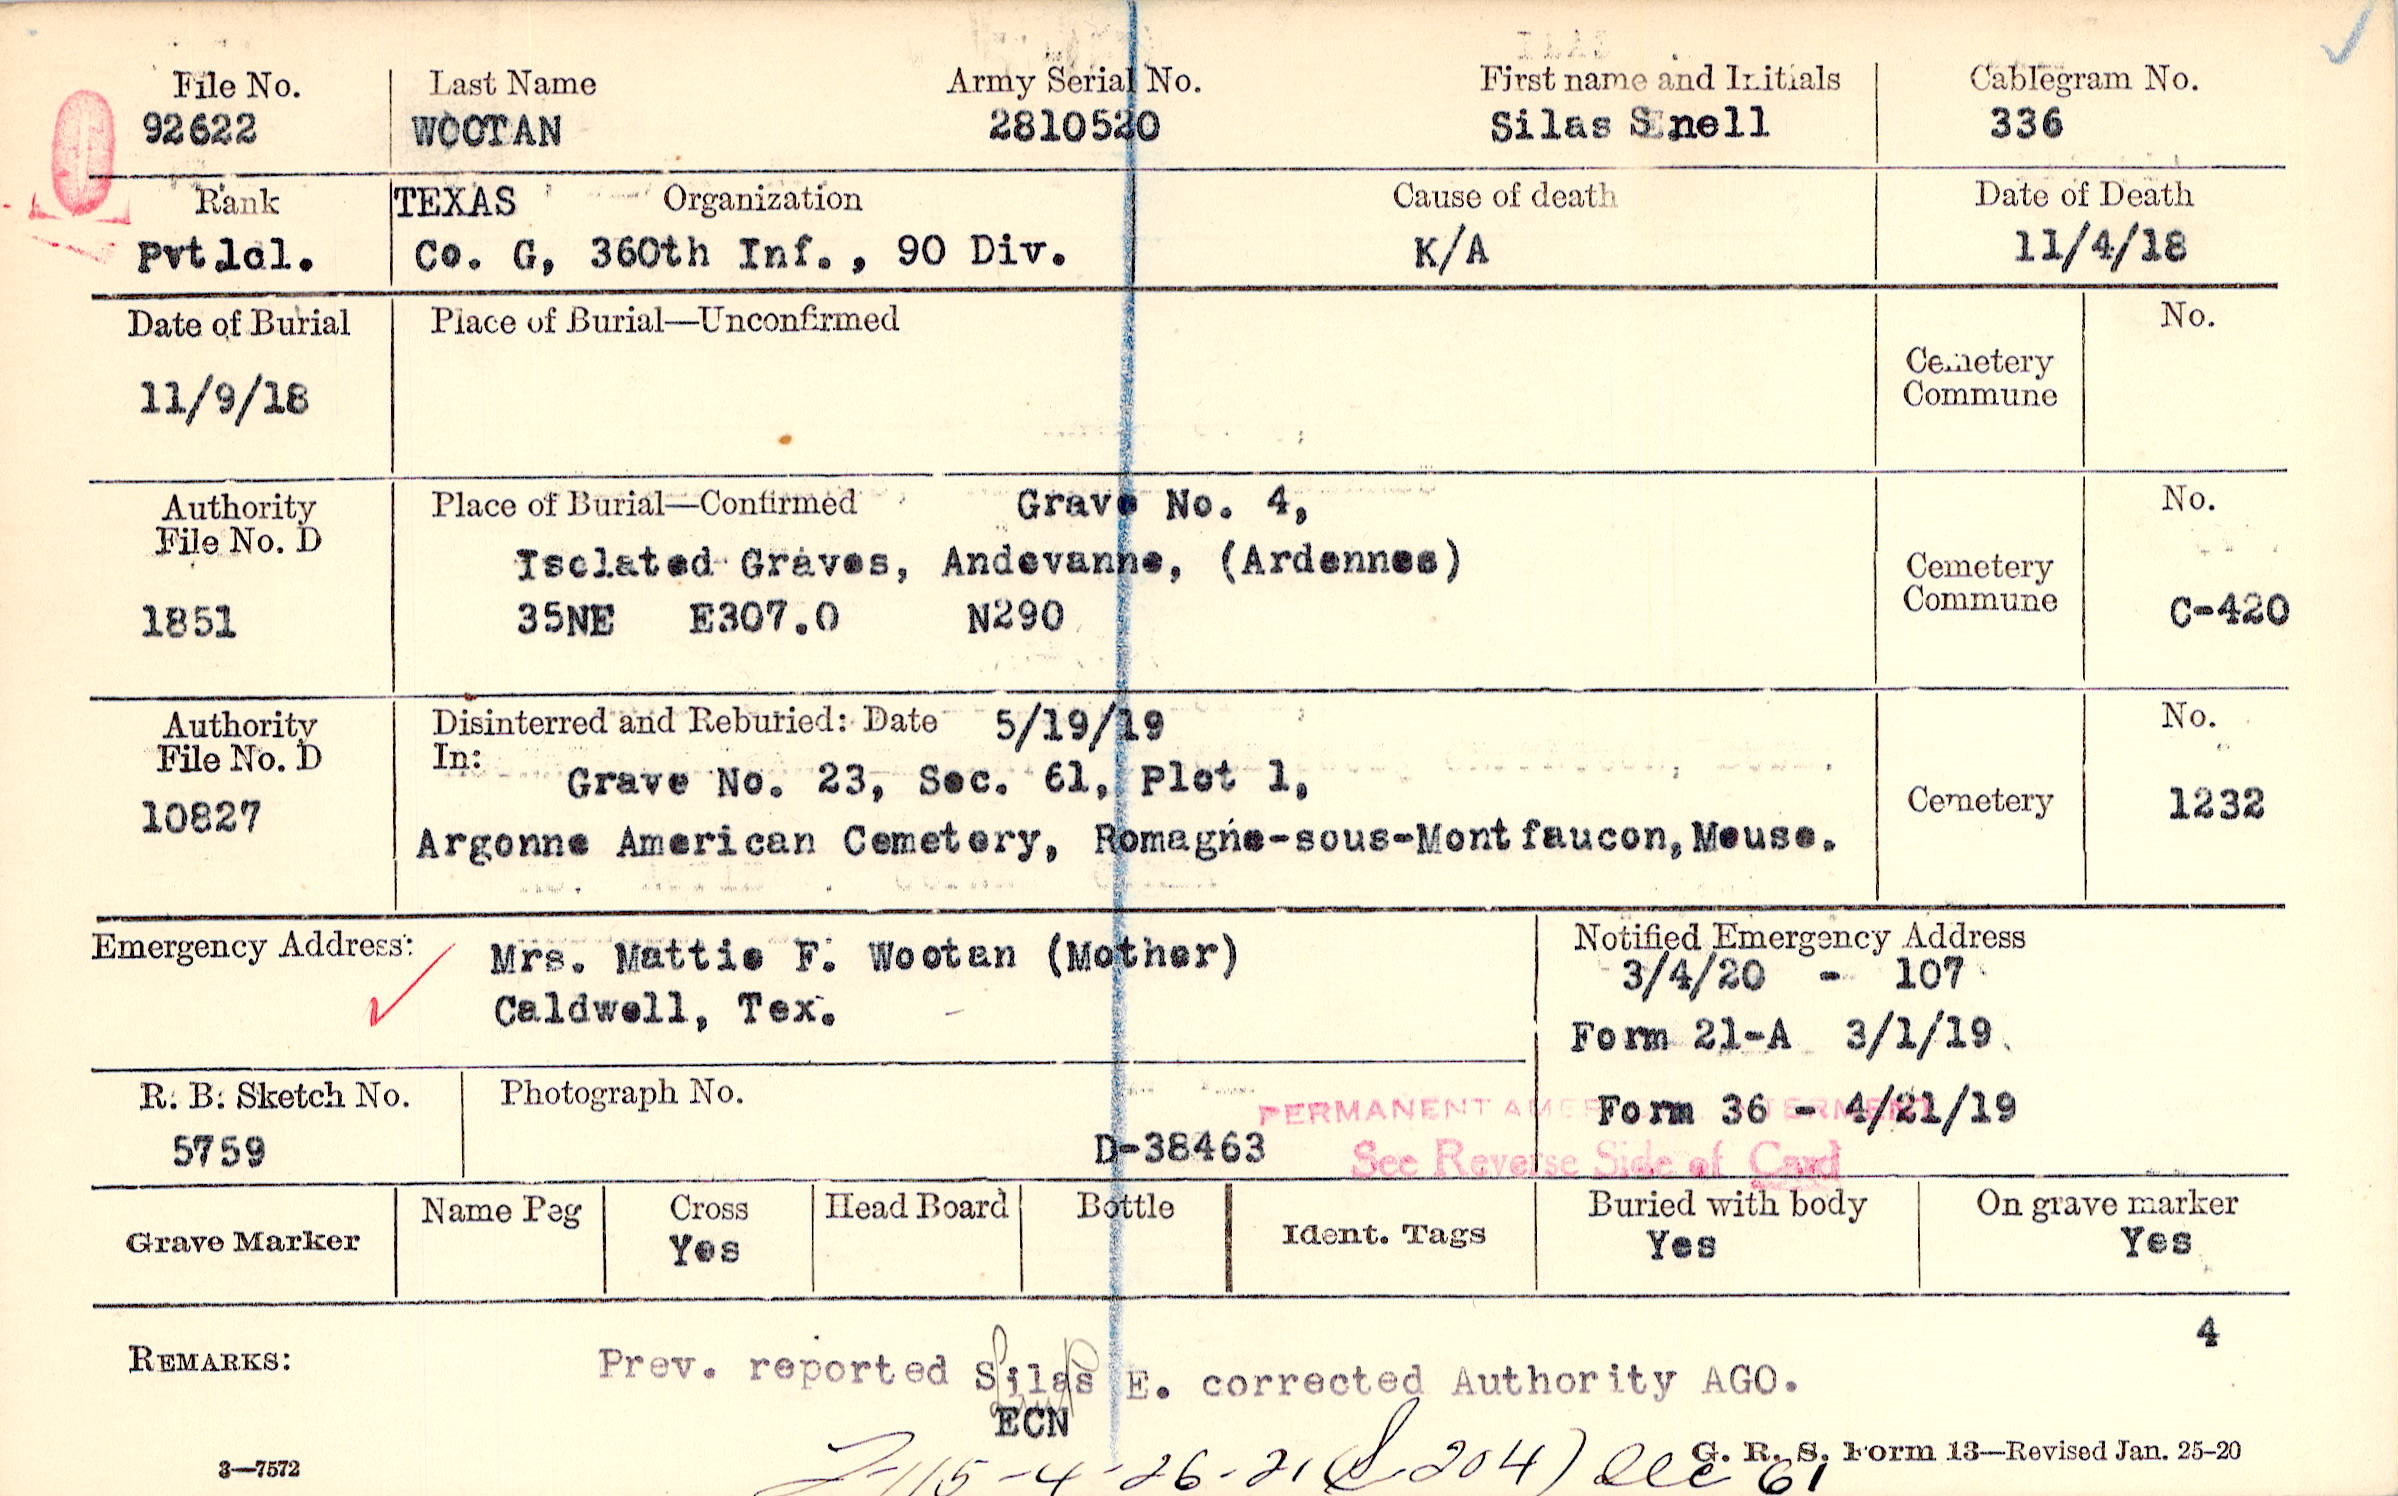 File No. Last Name Army Serial No. First name and Initials Cablegram No.
92622 WOOTAN 2810520 Silas Snell 336
Rank TEXAS Organization Cause of death Date of Death
Pvt.1cl. Co. G, 360th Inf., 90 Div. K/A 11/4/18
Date of Burial Place of Burial—Unconfirmed No.
11/9/18 Cemetery
Commune
Authority Place of Burial—Confirmed Grave No. 4, No.
File No. D Isolated Graves, Andevanne, (Ardennes) Cemetery
1851 35NE E307.0 N290 Commune C-420
Authority Disinterred and Reburied: Date 5/19/19 No.
File No. D In: Grave No. 23, Sec. 61, Plot 1,
10827 Cemetery 1232
Argonne American Cemetery, Romagne-sous-Montfaucon, Meuse.
Emergency Address: Mrs. Mattie F. Wootan (Mother) Notified Emergency Address
Caldwell, Tex. 3/4/20 - 107
Form 21-A 3/1/19.
R. B. Sketch No. Photograph No. Form 36 - 4/21/19
PERMANENT AMERICAN INTERMENT
5759 D-38463 See Reverse Side of Card
Grave Marker Name Peg Cross Head Board Bottle Ident. Tags Buried with body On grave marker
Yes Yes Yes
4
REMARKS: Prev. reported Silas E. corrected Authority AGO.
ECN
115-4-26-21 204) 61
3—7572 G. R. S. Form 13—Revised Jan. 25-20